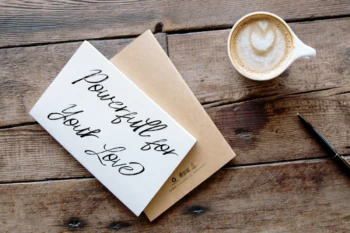 Powerfull for
Your Love